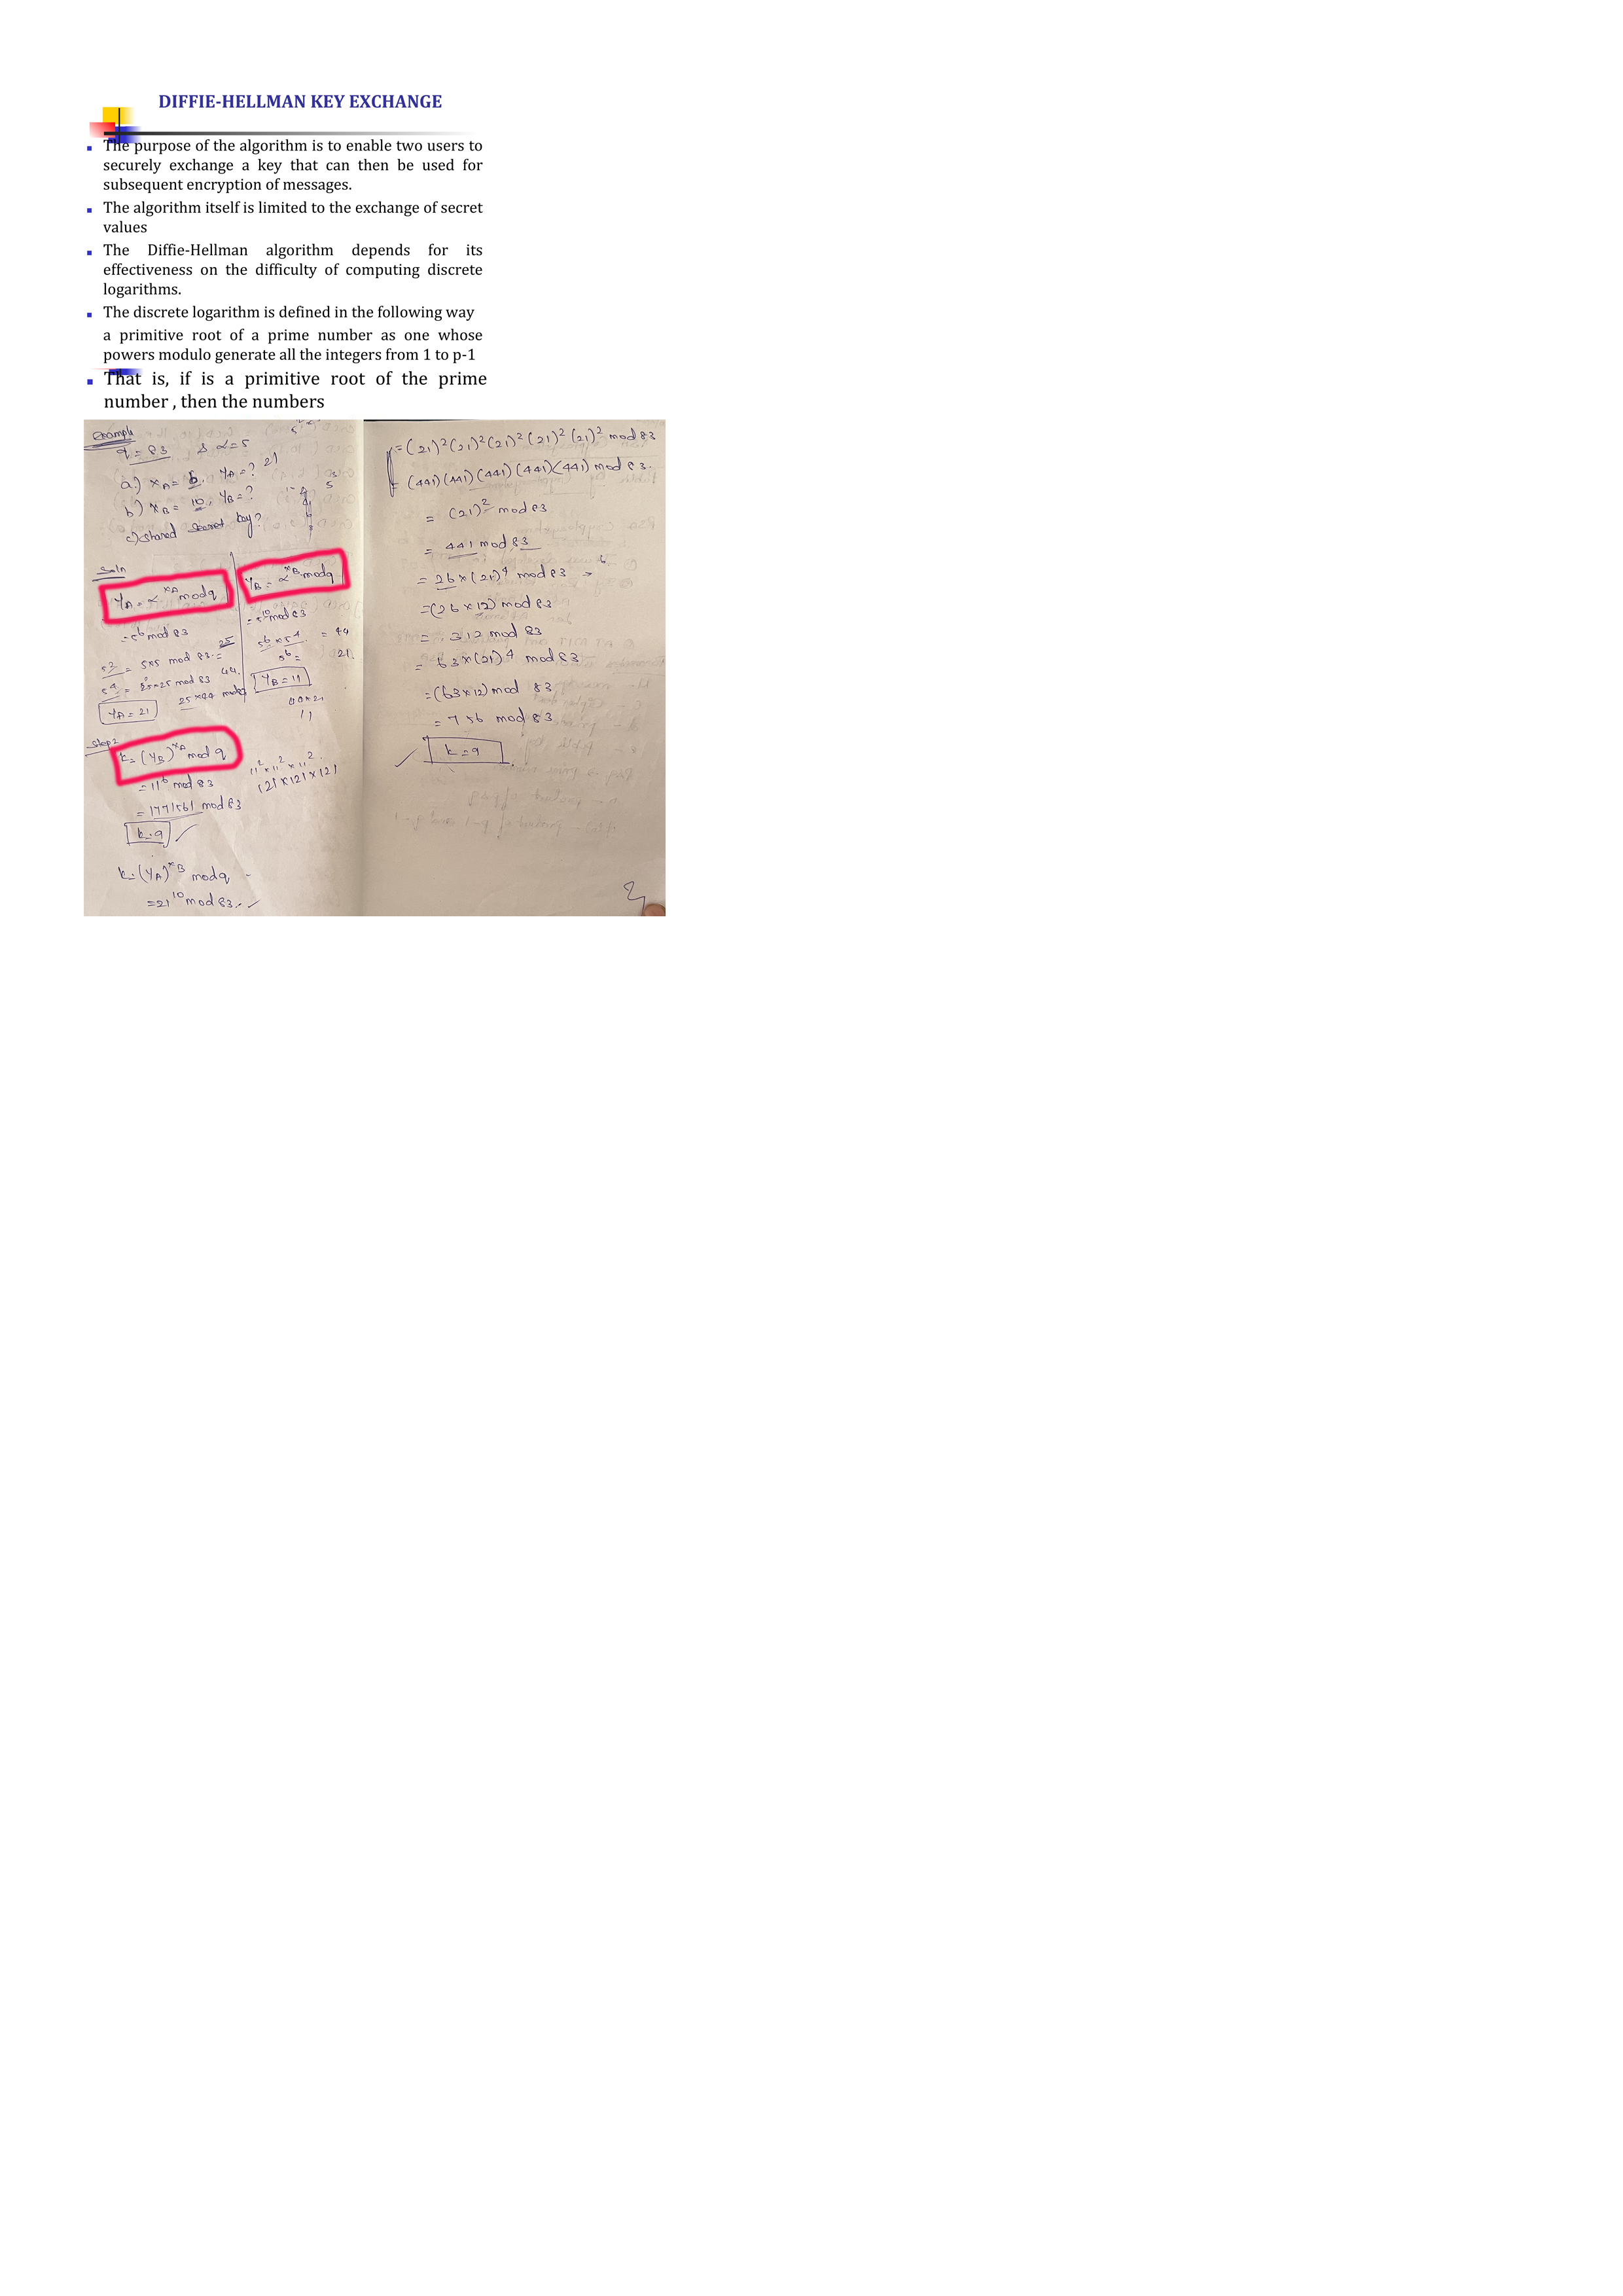 DIFFIE-HELLMAN KEY EXCHANGE
The purpose of the algorithm is to enable two users to
securely exchange a key that can then be used for
subsequent encryption of messages.
The algorithm itself is limited to the exchange of secret
values
The Diffie-Hellman algorithm depends for its
effectiveness on the difficulty of computing discrete
logarithms.
The discrete logarithm is defined in the following way
a primitive root of a prime number as one whose
powers modulo generate all the integers from 1 to p-1
That is, if is a primitive root of the prime
number , then the numbers
Example
q = 83 & α = 5
a.) XA = 6, YA = ? 21
b) XB = 10, YB = ?
c) shared secret key?
Soln
YA = α^XA mod q
= 5^6 mod 83
5^2 = 5×5 mod 83 = 25
5^4 = 25×25 mod 83 44
25×44 mod
YA = 21
YB = α^XB mod q
= 5^10 mod 83
5^6 × 5^4 = 44
5^6 = 21
YB = 11
44×21
11
Step 2
k = (YB)^XA mod q
= 11^6 mod 83
= 1771561 mod 83
k = 9
11^2 × 11^2 × 11^2
121×121×121
k = (YA)^XB mod q
= 21^10 mod 83
= (21)^2 (21)^2 (21)^2 (21)^2 (21)^2 mod 83
= (441) (441) (441) (441) (441) mod 83.
= (21)^2 mod 83
= 441 mod 83
= 26 × (21)^4 mod 83
= (26 × 12) mod 83
= 312 mod 83
= 63 × (21)^4 mod 83
= (63×12) mod 83
= 756 mod 83
k = 9